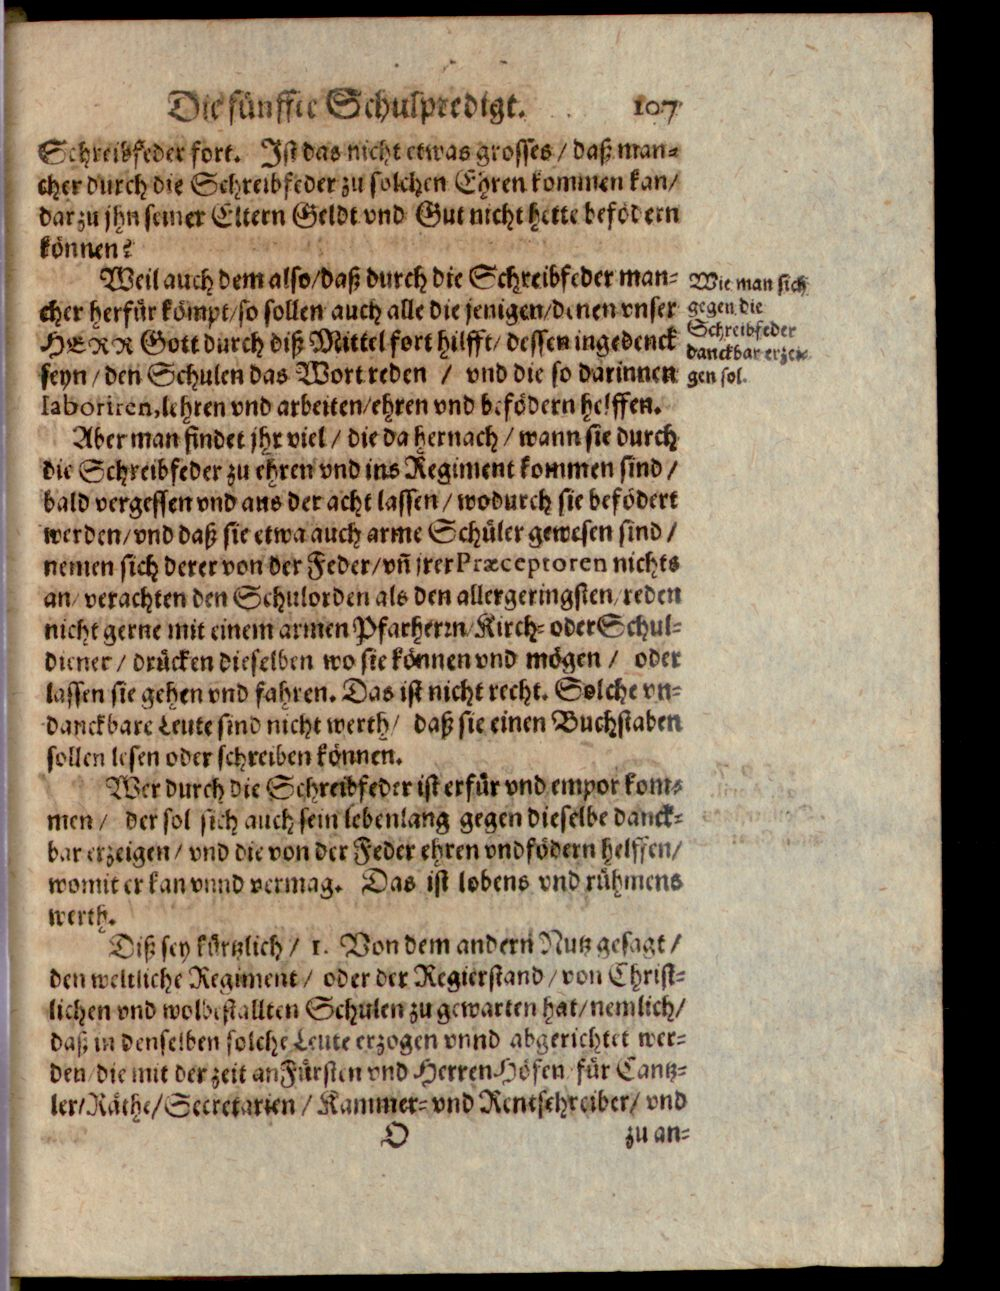 Die fünffte Schulpredigt. 107
Schreibfeder fort. Ist das nicht etwas grosses / daß man-
cher durch die Schreibfeder zu solchen Ehren kommen kan/
dar zu jhn seiner Eltern Geldt vnd Gut nicht hette befödern
können?
Weil auch dem also/daß durch die Schreibfeder man-
cher herfür kömpt/so sollen auch alle die jenigen/denen vnser
HERR Gott durch diß Mittel fort hilfft/ dessen ingedenck
seyn / den Schulen das Wort reden / vnd die so darinnen
laboriren, lehren vnd arbeiten/ehren vnd befödern helffen.
Wie man sich
gegen die
Schreibfeder
danckbar erzei-
gen sol.
Aber man findet jhr viel / die da hernach / wann sie durch
die Schreibfeder zu ehren vnd ins Regiment kommen sind /
bald vergessen vnd aus der acht lassen / wodurch sie befödert
werden/vnd daß sie etwa auch arme Schüler gewesen sind /
nemen sich derer von der Feder/vn̄ jrer Præceptoren nichts
an/ verachten den Schulorden als den allergeringsten/reden
nicht gerne mit einem armen Pfarherrn/Kirch- oder Schul-
diener / drücken dieselben wo sie können vnd mögen / oder
lassen sie gehen vnd fahren. Das ist nicht recht. Solche vn-
danckbare Leute sind nicht werth/ daß sie einen Buchstaben
sollen lesen oder schreiben können.
Wer durch die Schreibfeder ist erfür vnd empor kom-
men / der sol sich auch sein lebenlang gegen dieselbe danck-
bar erzeigen / vnd die von der Feder ehren vnd födern helffen/
womit er kan vnnd vermag. Das ist lobens vnd rühmens
werth.
Diß sey kürtzlich / 1. Von dem andern Nutz gesagt /
den weltliche Regiment / oder der Regierstand / von Christ-
lichen vnd wolbestallten Schulen zu gewarten hat/nemlich/
daß in denselben solche Leute erzogen vnnd abgerichtet wer-
den/die mit der zeit an Fürsten vnd Herren Höfen/für Cantz-
ler/Räthe/Secretarien / Kammer- vnd Rentschreiber/ vnd
O zu an-